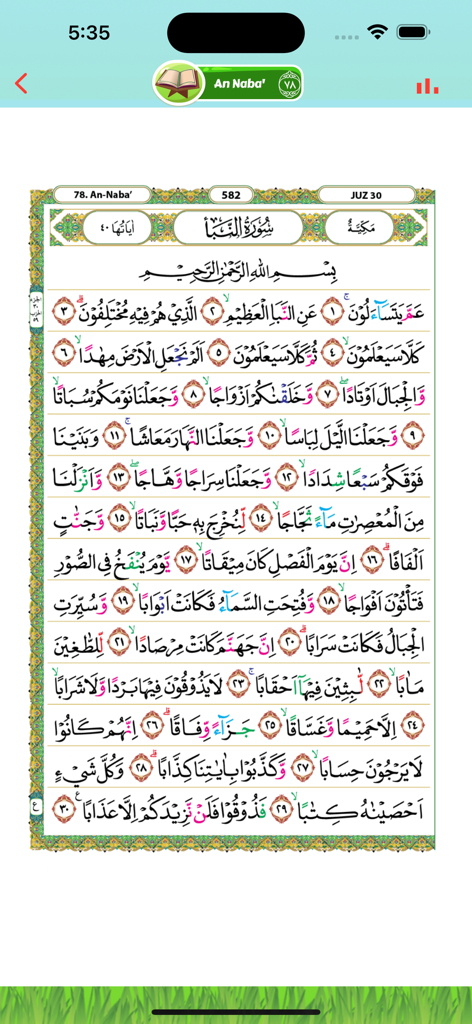 5:35
An Naba' ٧٨
78. An-Naba' 582 JUZ 30
مَكِّيَّةٌ سُوْرَةُ النَّبَأِ اٰيَاتُهَا ٤٠
بِسْمِ اللّٰهِ الرَّحْمٰنِ الرَّحِيْمِ
عَمَّ يَتَسَاۤءَلُوْنَۚ ١ عَنِ النَّبَاِ الْعَظِيْمِۙ ٢ الَّذِيْ هُمْ فِيْهِ مُخْتَلِفُوْنَۗ ٣
كَلَّا سَيَعْلَمُوْنَۙ ٤ ثُمَّ كَلَّا سَيَعْلَمُوْنَ ٥ اَلَمْ نَجْعَلِ الْاَرْضَ مِهٰدًاۙ ٦
وَّالْجِبَالَ اَوْتَادًاۖ ٧ وَّخَلَقْنٰكُمْ اَزْوَاجًاۙ ٨ وَّجَعَلْنَا نَوْمَكُمْ سُبَاتًاۙ
٩ وَّجَعَلْنَا الَّيْلَ لِبَاسًاۙ ١٠ وَّجَعَلْنَا النَّهَارَ مَعَاشًاۚ ١١ وَبَنَيْنَا
فَوْقَكُمْ سَبْعًا شِدَادًاۙ ١٢ وَّجَعَلْنَا سِرَاجًا وَّهَّاجًاۖ ١٣ وَّاَنْزَلْنَا
مِنَ الْمُعْصِرٰتِ مَاۤءً ثَجَّاجًاۙ ١٤ لِّنُخْرِجَ بِهٖ حَبًّا وَّنَبَاتًاۙ ١٥ وَّجَنّٰتٍ
اَلْفَافًاۗ ١٦ اِنَّ يَوْمَ الْفَصْلِ كَانَ مِيْقَاتًاۙ ١٧ يَّوْمَ يُنْفَخُ فِى الصُّوْرِ
فَتَأْتُوْنَ اَفْوَاجًاۙ ١٨ وَّفُتِحَتِ السَّمَاۤءُ فَكَانَتْ اَبْوَابًاۙ ١٩ وَّسُيِّرَتِ
الْجِبَالُ فَكَانَتْ سَرَابًاۗ ٢٠ اِنَّ جَهَنَّمَ كَانَتْ مِرْصَادًاۙ ٢١ لِّلطّٰغِيْنَ
مَاٰبًاۙ ٢٢ لّٰبِثِيْنَ فِيْهَآ اَحْقَابًاۚ ٢٣ لَا يَذُوْقُوْنَ فِيْهَا بَرْدًا وَّلَا شَرَابًاۙ
٢٤ اِلَّا حَمِيْمًا وَّغَسَّاقًاۙ ٢٥ جَزَاۤءً وِّفَاقًاۗ ٢٦ اِنَّهُمْ كَانُوْا
لَا يَرْجُوْنَ حِسَابًاۙ ٢٧ وَّكَذَّبُوْا بِاٰيٰتِنَا كِذَّابًاۗ ٢٨ وَكُلَّ شَيْءٍ
اَحْصَيْنٰهُ كِتٰبًاۙ ٢٩ فَذُوْقُوْا فَلَنْ نَّزِيْدَكُمْ اِلَّا عَذَابًاࣖ ٣٠
ع